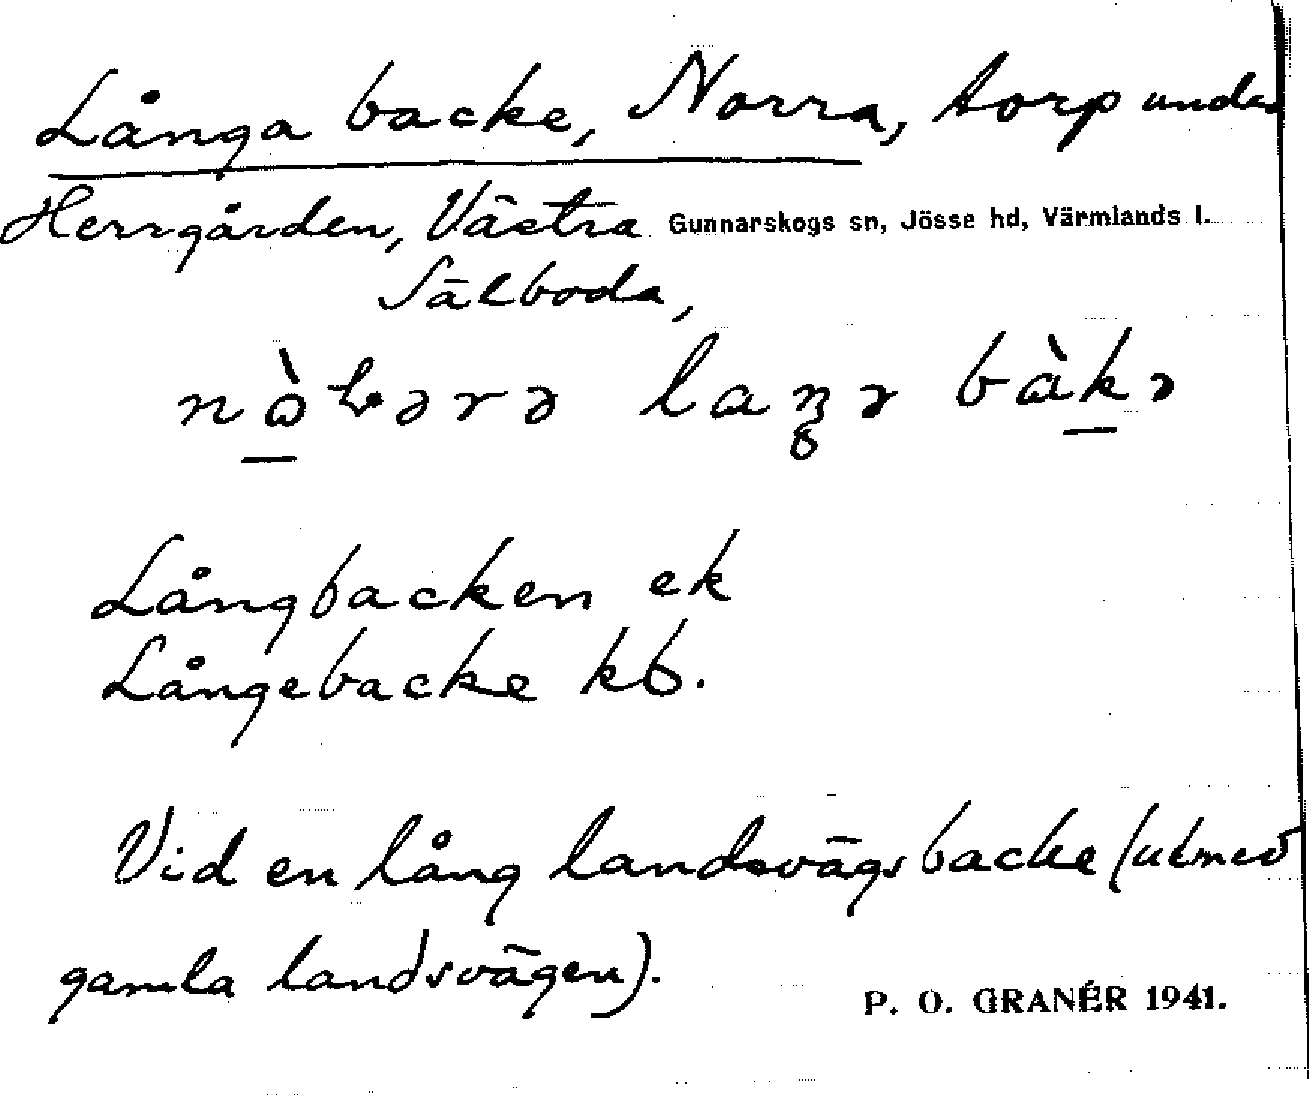 Långa backe, Norra, torp under
Herrgården, Västra Gunnarskogs sn, Jösse hd, Värmlands l.
Sälboda,
laŋə bàkə
Långbacken ek
Långebacke kb.
Vid en lång landsvägsbacke (utmed
gamla landsvägen).
P. O. GRANÉR 1941.